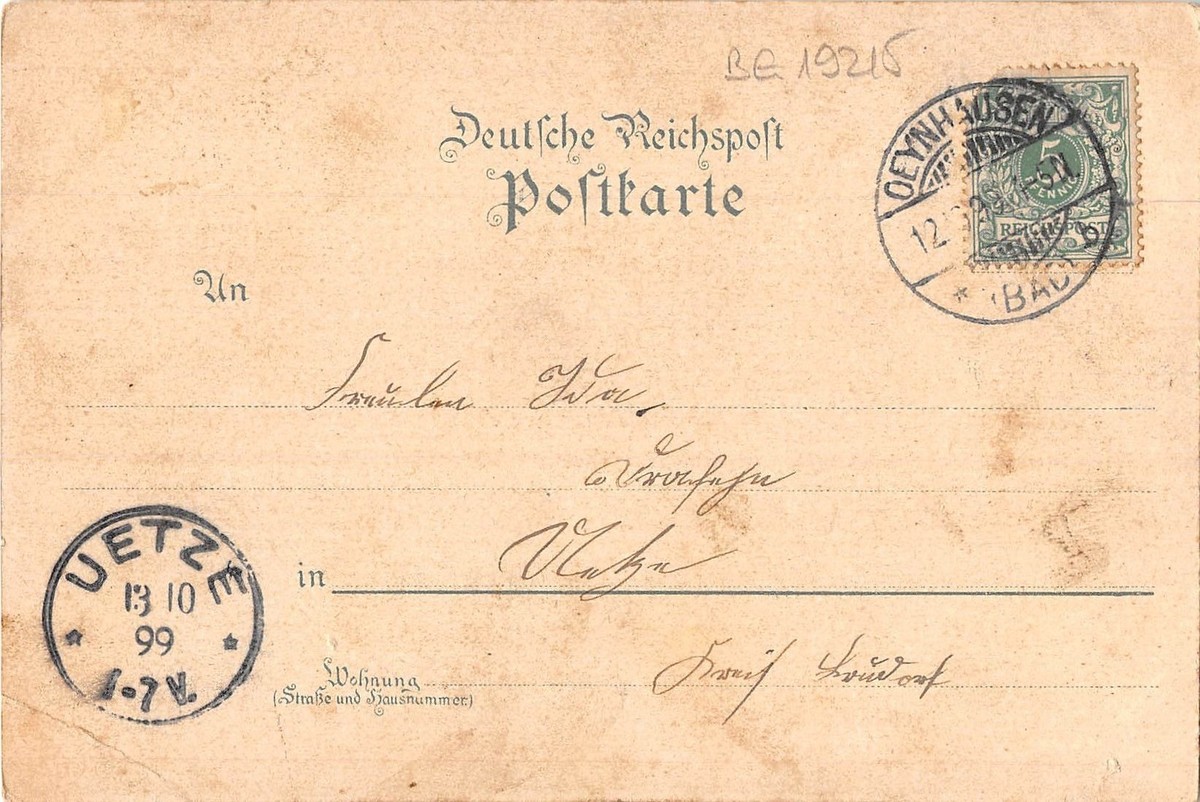 BE 19215
Deutsche Reichspost
Postkarte
OEYNHAUSEN
12
5-6N
* (BAD) b
5
PFENNIG
REICHSPOST
An
Fräulein Ida
in Uetze
Kreis
Wohnung
(Straße und Hausnummer)
UETZE
13 10
99
* *
-7 V.